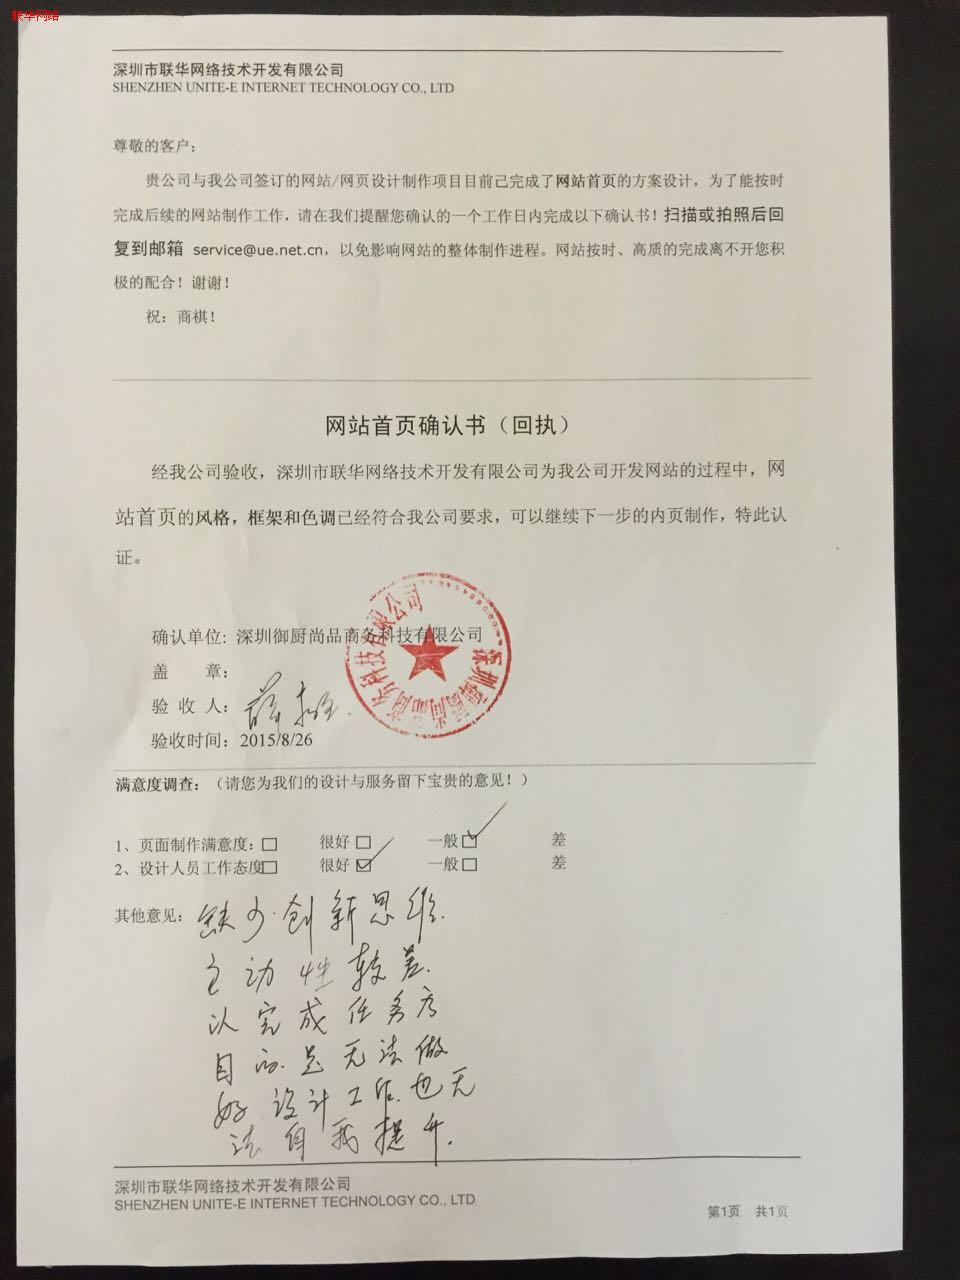 联华网络
深圳市联华网络技术开发有限公司
SHENZHEN UNITE-E INTERNET TECHNOLOGY CO., LTD
尊敬的客户：
贵公司与我公司签订的网站/网页设计制作项目目前己完成了网站首页的方案设计，为了能按时
完成后续的网站制作工作，请在我们提醒您确认的一个工作日内完成以下确认书！扫描或拍照后回
复到邮箱 service@ue.net.cn，以免影响网站的整体制作进程。网站按时、高质的完成离不开您积
极的配合！谢谢！
祝：商祺！
网站首页确认书（回执）
经我公司验收，深圳市联华网络技术开发有限公司为我公司开发网站的过程中，网
站首页的风格，框架和色调已经符合我公司要求，可以继续下一步的内页制作，特此认
证。
确认单位: 深圳御厨尚品商务科技有限公司
盖 章：
验 收 人：
验收时间：2015/8/26
深圳御厨尚品商务科技有限公司
满意度调查：（请您为我们的设计与服务留下宝贵的意见！）
1、页面制作满意度：□ 很好 □ 一般 ☑ 差
2、设计人员工作态度□ 很好 ☑ 一般 □ 差
其他意见：缺少创新思维.
主动性较差.
以完成任务为
目的.是无法做
好设计工作.也无
法自我提升.
深圳市联华网络技术开发有限公司
SHENZHEN UNITE-E INTERNET TECHNOLOGY CO., LTD
第1页 共1页